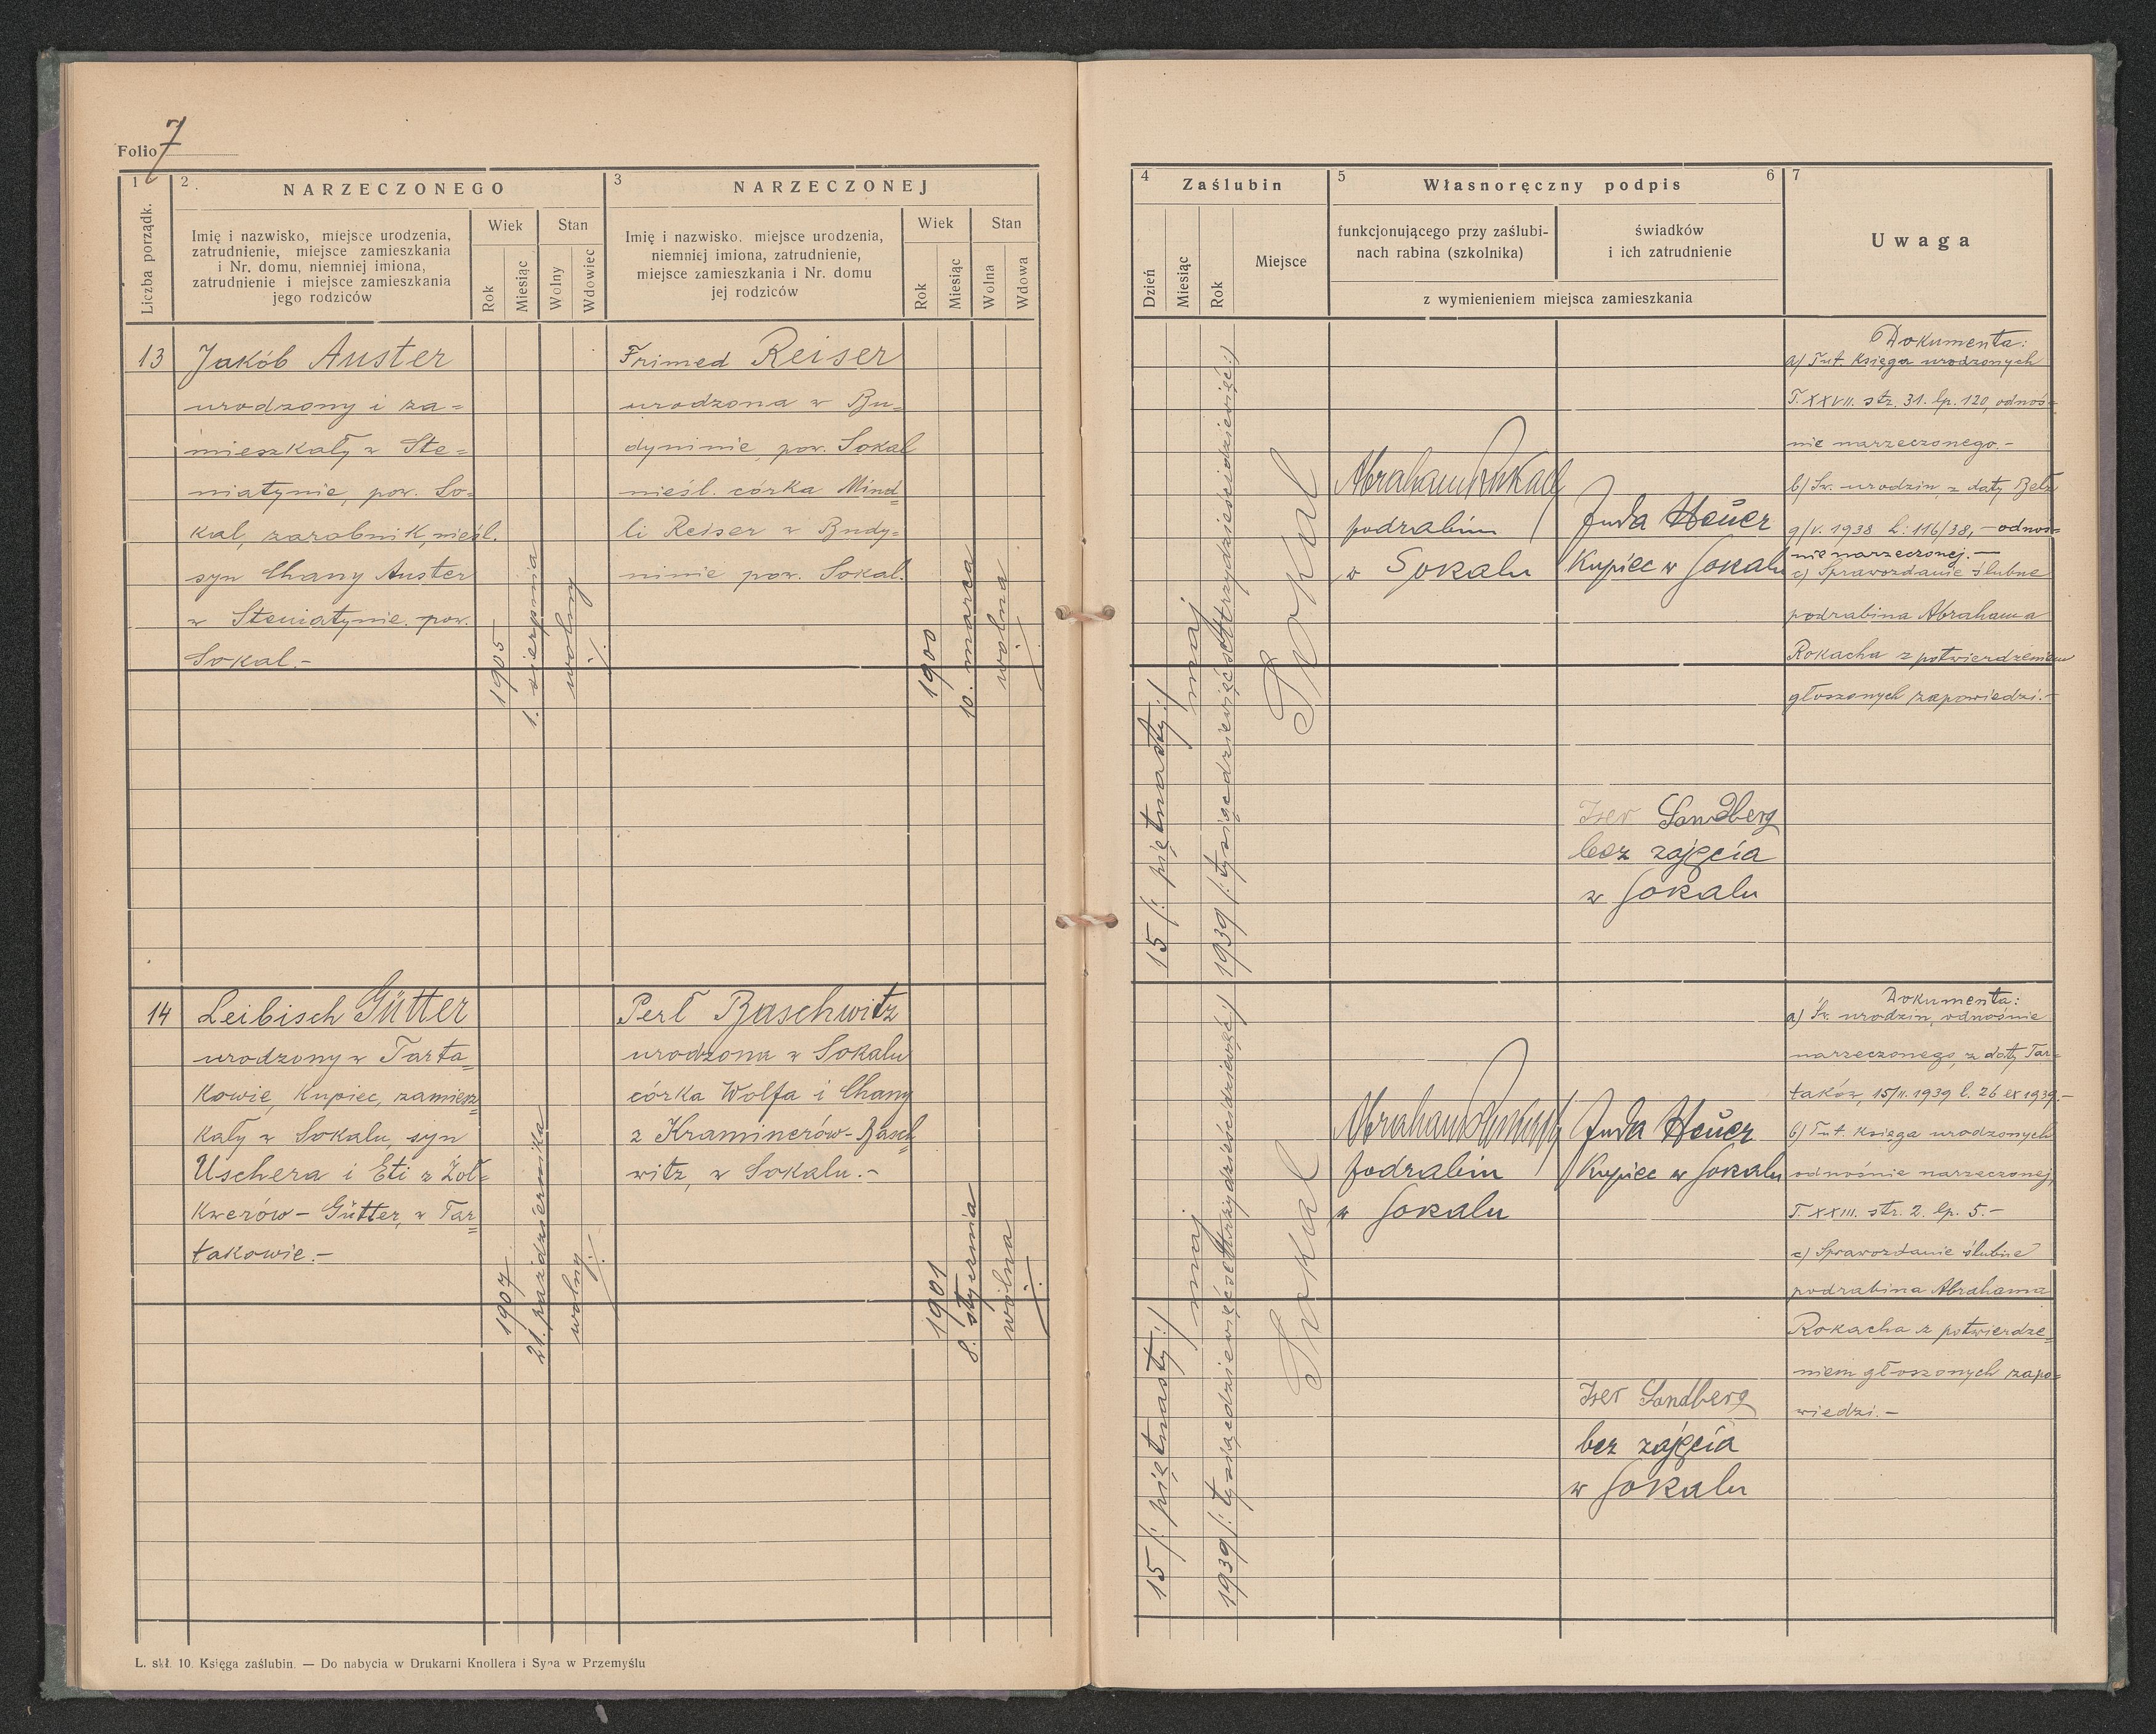 Folio 7
1
2
NARZECZONEGO
3
NARZECZONEJ
Liczba porządk.
Imię i nazwisko, miejsce urodzenia,
zatrudnienie, miejsce zamieszkania
i Nr. domu, niemniej imiona,
zatrudnienie i miejsce zamieszkania
jego rodziców
Wiek
Stan
Rok
Miesiąc
Wolny
Wdowiec
Imię i nazwisko. miejsce urodzenia,
niemniej imiona, zatrudnienie,
miejsce zamieszkania i Nr. domu
jej rodziców
Wiek
Stan
Rok
Miesiąc
Wolna
Wdowa
13
Jakób Auster
urodzony i za=
mieszkały w Ste=
niatynie, pow. So=
kal, zarobnik, nieśl.
syn Chany Auster
w Steniatynie. pow.
Sokal.-
1905
1. sierpnia
wolny
Frimed Reiser
urodzona w Bu=
dyninie, pow. Sokal
nieśl. córka Mind=
li Reiser w Budy=
ninie pow. Sokal.
1900
10. marca
wolna
14
Leibisch Gütter
urodzony w Tarta=
kowie, kupiec, zamiesz=
kały w Sokalu, syn
Uschera i Eti z Żoł=
kwerów - Gütter, w Tar=
takowie.-
1907
21. października
wolny
Perl Baschwitz
urodzona w Sokalu
córka Wolfa i Chany
z Kraminerów-Basch=
witz, w Sokalu.-
1901
8. stycznia
wolna
L. skł. 10. Księga zaślubin. — Do nabycia w Drukarni Knollera i Syna w Przemyślu
4
Zaślubin
5
Własnoręczny podpis
6
7
Dzień
Miesiąc
Rok
Miejsce
funkcjonującego przy zaślubi-
nach rabina (szkolnika)
świadków
i ich zatrudnienie
z wymienieniem miejsca zamieszkania
Uwaga
15 /: piętnasty:/
maj
1939 /: tysiącdziewięćsettrzydzieścidziewięć:/
Sokal
Abraham Rokach
podrabin
w Sokalu
Juda Heuer
Kupiec w Sokalu
Iser Sandberg
bez zajęcia
w Sokalu
Dokumenta:
a) Tut. Księga urodzonych
T. XXVII. str. 31. lp. 120, odnoś=
nie narzeczonego.-
b) Św. urodzin, z daty Bełz
9/V. 1938 L: 116/38, - odnoś=
nie narzeczonej. -
c) Sprawozdanie ślubne
podrabina Abrahama
Rokacha z potwierdzeniem
głoszonych zapowiedzi.-
15 /: piętnasty:/
maj
1939 /: tysiącdziewięćsettrzydzieścidziewięć:/
Sokal
Abraham Rokach
podrabin
w Sokalu
Juda Heuer
Kupiec w Sokalu
Iser Sandberg
bez zajęcia
w Sokalu
Dokumenta:
a) Św. urodzin, odnośnie
narzeczonego, z daty Tar=
taków, 15/II. 1939 l. 26 ex 1939.-
b) Tut. księga urodzonych
odnośnie narzeczonej,
T. XXIII. str. 2. lp. 5.-
c) Sprawozdanie ślubne
podrabina Abrahama
Rokacha z potwierdze=
niem głoszonych zapo=
wiedzi.-